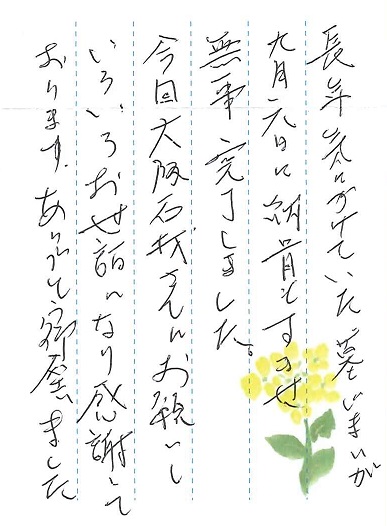 長年気にかけていた墓じまいが
九月元日に納骨もすませ
無事完了しました。
今回大阪石材さんにお願いし
いろいろお世話になり感謝して
おります。ありがとう御座いました